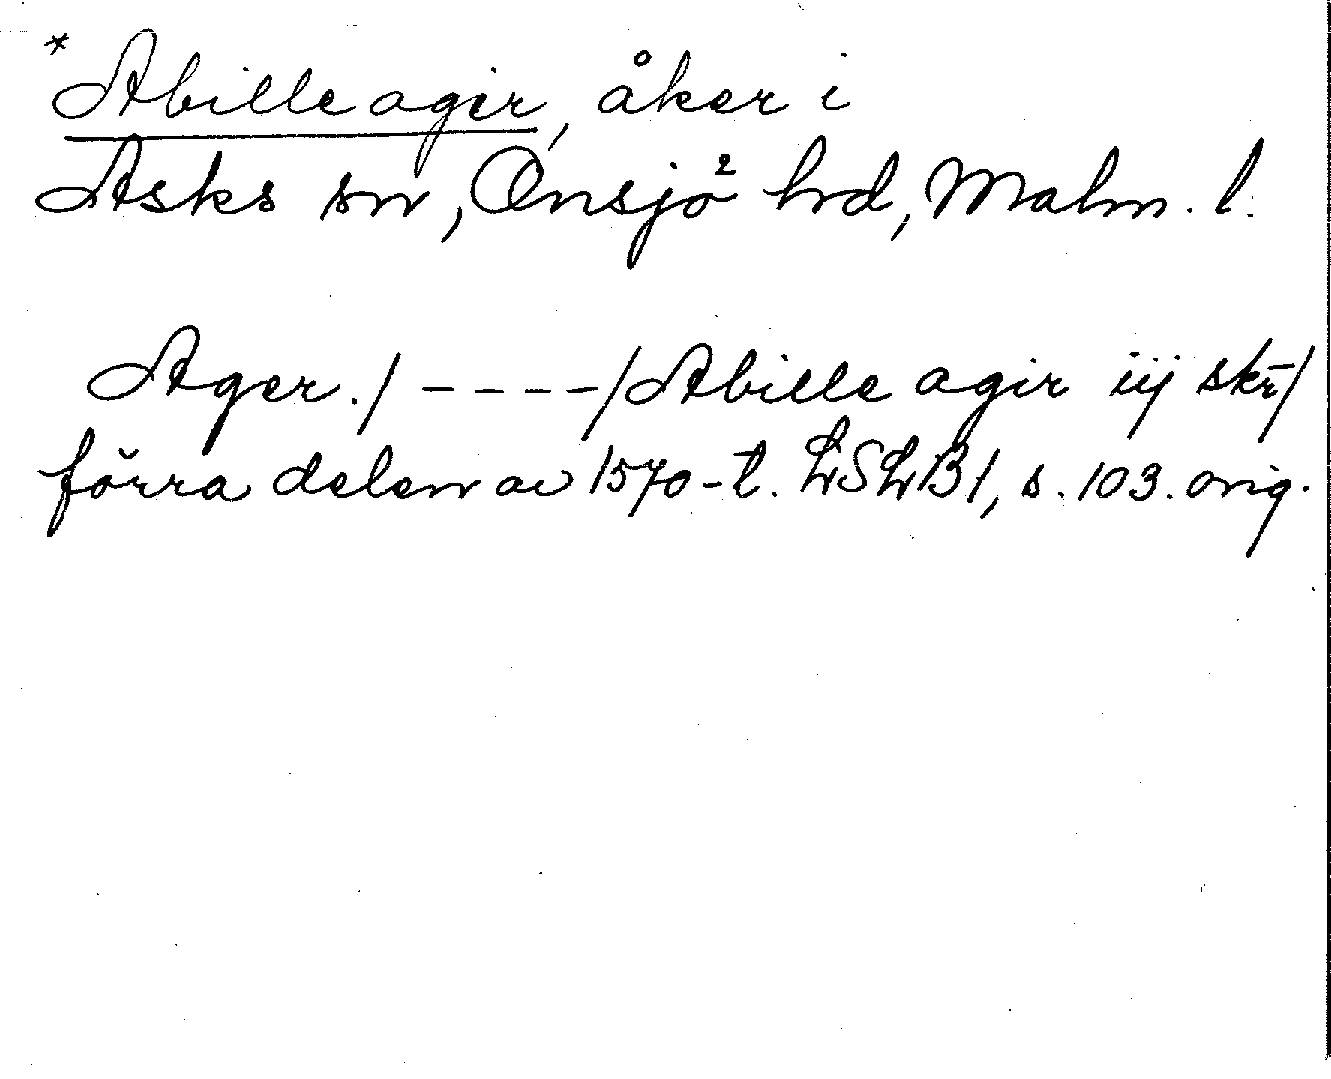 *Abille agir, åker i
Asks sn, Onsjö hrd, Malm. l.
Ager./ - - - - /Abille agir iij skr̄/
förra delen av 1570-t. LSLB1, s. 103. orig.